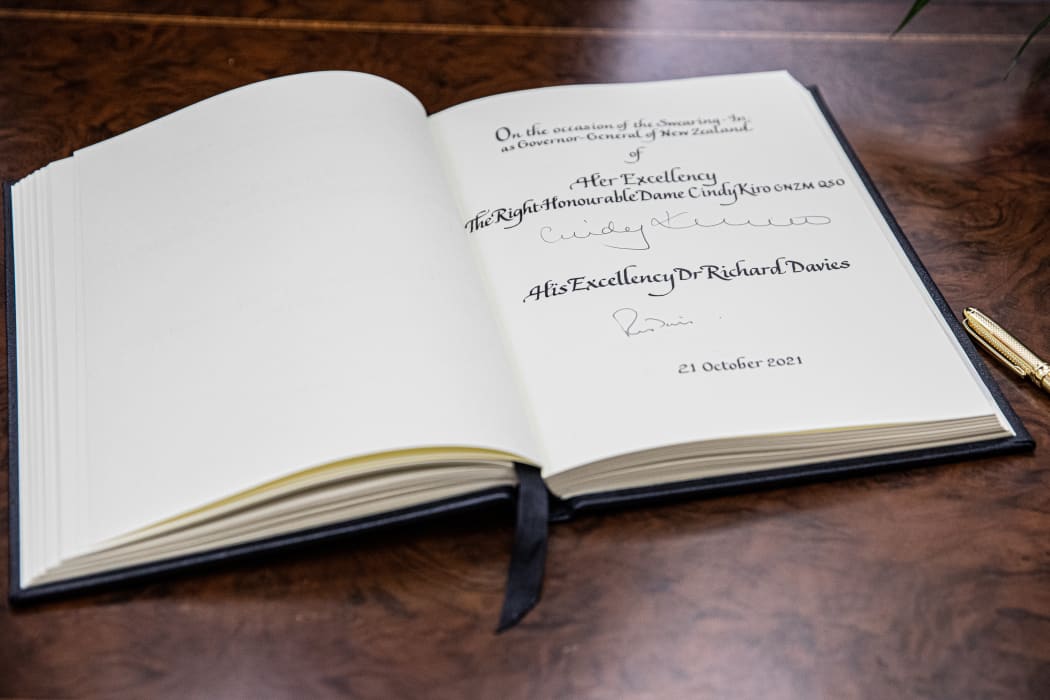 On the occasion of the Swearing-In
as Governor-General of New Zealand
of
Her Excellency
The Right Honourable Dame Cindy Kiro GNZM QSO
Cindy Kiro
His Excellency Dr Richard Davies
21 October 2021